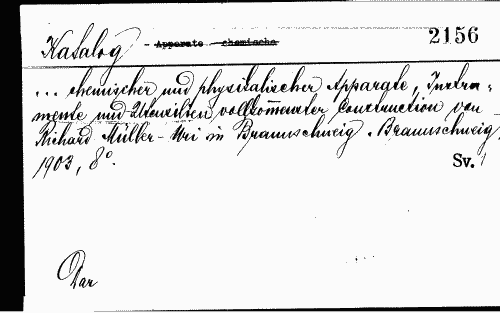 Katalog - Apparate chemische 2156
... chemischer und physikalischer Apparate, Instru-
mente und Utensilien vollkommenster Construction von
Richard Müller-Uri in Braunschweig. Braunschweig,
1903, 8°. Sv. 1
Dar